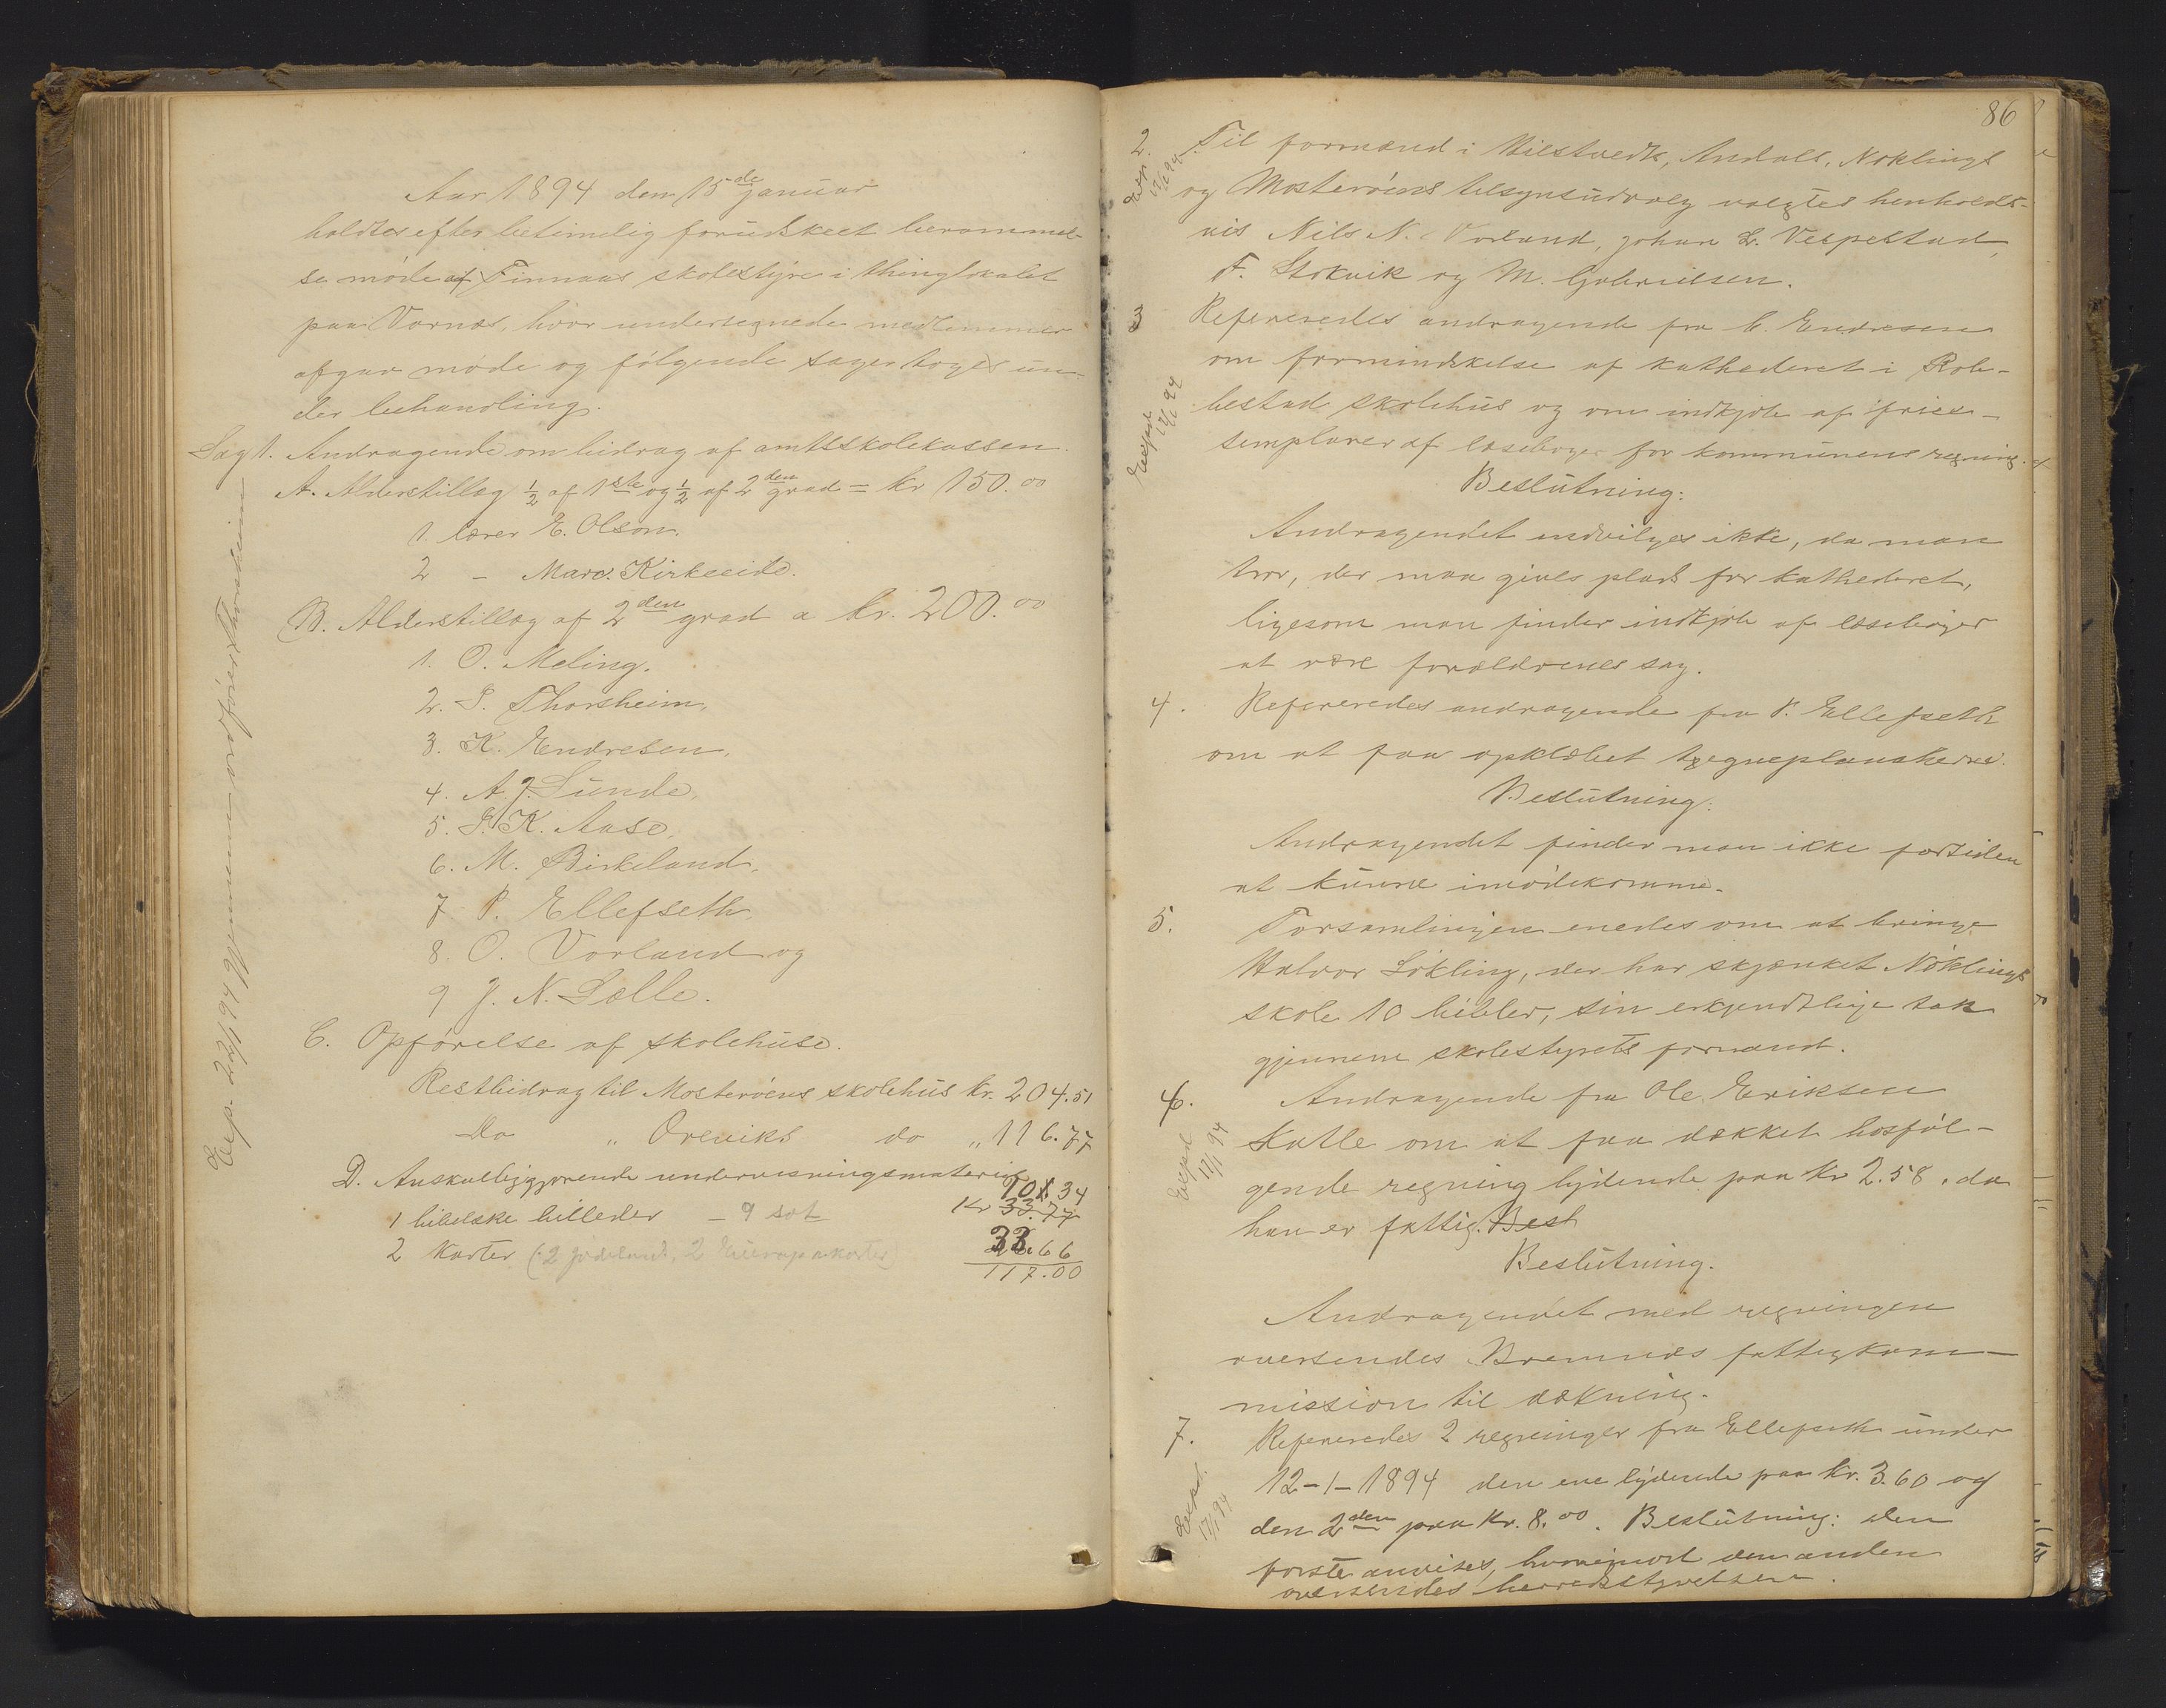 Aar 1894 den 15de januar
holdtes efter betimelig forudskeet berammel-
se møde af Finnaas skolestyre i thinglokalet
paa Vornæs, hvor undertegnede medlemmer
afgav møde og følgende sager toges un-
der behandling.
Sag 1. Andragende om bidrag af amtsskolekassen.
A. Alderstillæg ½ af 1ste og ½ af 2den grad = kr 150.00
1. lærer E. Olson.
2 - Marc. Kirkeeide.
B. Alderstillæg af 2den grad a kr. 200.00
1. O. Meling.
2. S. Thorsheim.
3. K. Endresen.
4. A. J. Sunde.
5. S. K. Aase.
6. M. Birkeland.
7 P. Ellefseth
8. O. Vorland og
9 J. N. Sælle.
C. Opførelse af skolehuse.
Restbidrag til Mosterøens skolehus kr. 204.51
Do " Øreviks do " 116.77
D. Anskuelliggjørende undervisningsmateriel
1 bibelske billeder - 9 sæt Kr 33.77
101.34
2 Karter (2 jødeland, 2 Europakarter) 33.66
117.00
Exp. 22/1 94 gjennem ordfører Thorsheim
86
2. Til formænd i Hilstvedts, Andals, Nøklings
og Mosterøens tilsynsudvalg valgtes henholds-
vis Nils N. Vorland, Johan L. Vespestad,
F. Stokvik og M. Gabrielsen.
Exp. 17/1 94
3 Refereredes andragende fra C. Endresen
om formindskelse af kathederet i Role-
bestad skolehus og om indkjøb af friex-
semplarer af læsebøger for kommunens regning.
Exped. 17/1 94
Beslutning:
Andragendet indvilges ikke, da man
tror, der maa gives plads for kathederet,
ligesom man finder indkjøb af læsebøger
at være forældrenes sag.
4. Refereredes andragende fra P. Ellefseth
om at faa opklæbet tegneplanskerne.
Beslutning:
Andragendet finder man ikke fortiden
at kunne imødekomme.
5. Forsamlingen enedes om at bringe
Halvor Løkling, der har skjænket Nøklings
skole 10 bibler, sin erkjendtlige tak
gjennem skolestyrets formand.
6. Andragende fra Ole Eriksen
Katle om at faa dækket hosføl-
gende regning lydende paa kr 2.58, da
han er fattig. Besl
Exped 17/1 94
Beslutning.
Andragendet med regningen
oversendes Bremnes fattigkom-
mission til dækning.
7. Refereredes 2 regninger fra Ellefseth under
12-1-1894 den ene lydende paa kr. 3.60 og
den 2den paa kr. 8.00. Beslutning: den
første anvises, hvorimod den anden
oversendes herredsstyrelsen.
Exped. 17/1 94